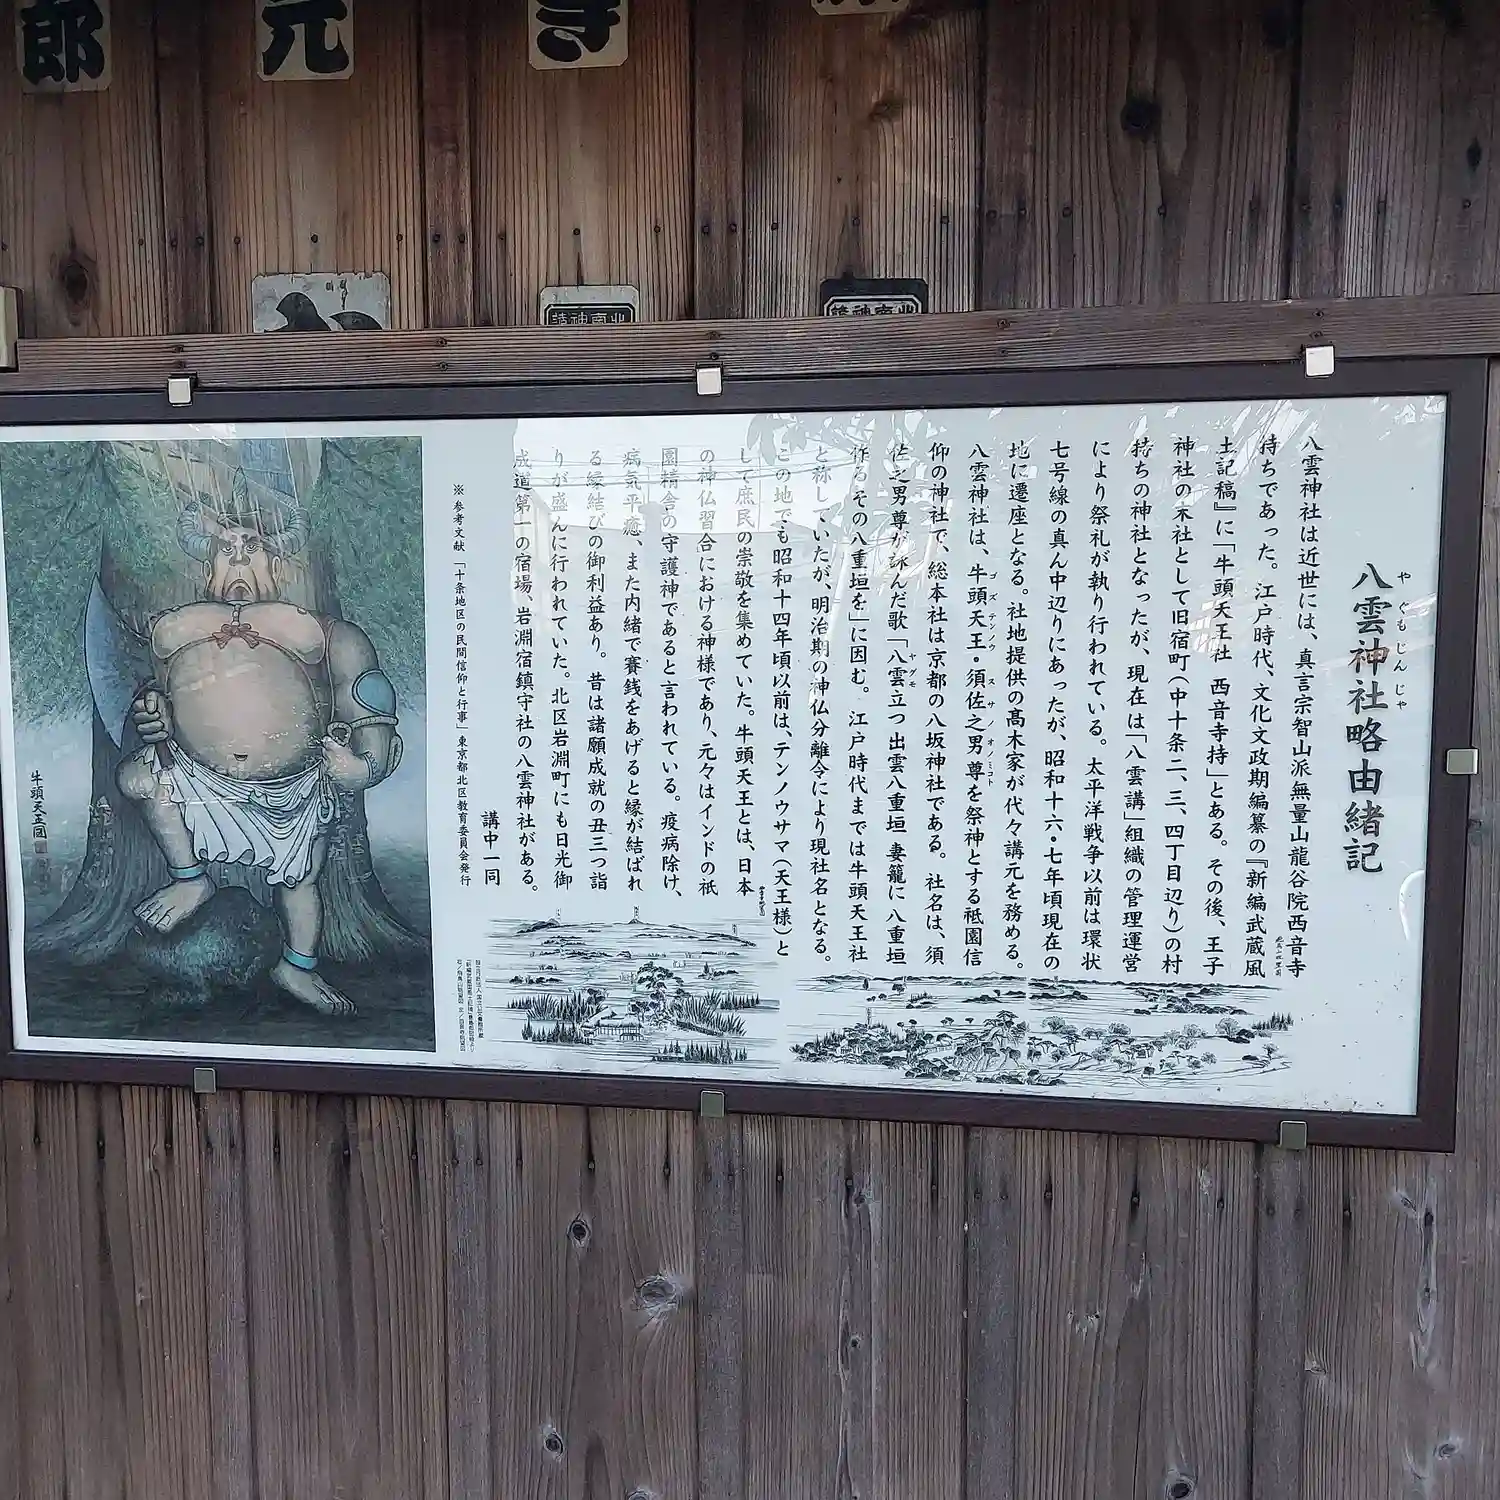 郎
元
き
八雲神社略由緒記
やぐもじんじゃ
八雲神社は近世には、真言宗智山派無量山龍谷院西音寺
持ちであった。江戸時代、文化文政期編纂の『新編武蔵風
土記稿』に「牛頭天王社 西音寺持」とある。その後、王子
神社の末社として旧宿町(中十条二、三、四丁目辺り)の村
持ちの神社となったが、現在は「八雲講」組織の管理運営
により祭礼が執り行われている。太平洋戦争以前は環状
七号線の真ん中辺りにあったが、昭和十六・七年頃現在の
地に遷座となる。社地提供の髙木家が代々講元を務める。
八雲神社は、牛頭天王・須佐之男尊を祭神とする祗園信
ゴズテンノウ スサノオノミコト
仰の神社で、総本社は京都の八坂神社である。社名は、須
佐之男尊が詠んだ歌「八雲立つ 出雲八重垣 妻籠に 八重垣
ヤグモ
作る その八重垣を」に因む。江戸時代までは牛頭天王社
と称していたが、明治期の神仏分離令により現社名となる。
この地でも昭和十四年頃以前は、テンノウサマ(天王様)と
して庶民の崇敬を集めていた。牛頭天王とは、日本
の神仏習合における神様であり、元々はインドの祇
園精舎の守護神であると言われている。疫病除け、
病気平癒、また内緒で賽銭をあげると縁が結ばれ
る縁結びの御利益あり。昔は諸願成就の丑三つ詣
りが盛んに行われていた。北区岩淵町にも日光御
成道第一の宿場、岩淵宿鎮守社の八雲神社がある。
講中一同
※ 参考文献 「十条地区の民間信仰と行事」東京都北区教育委員会発行
牛頭天王図